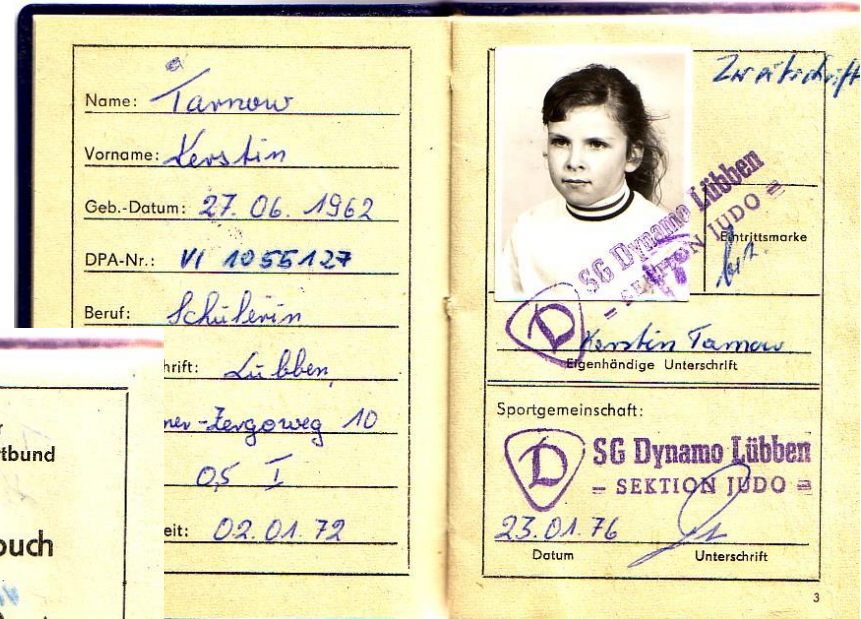 Name: Tarnow
Vorname: Kerstin
Geb.-Datum: 27. 06. 1962
DPA-Nr.: VI 1055127
Beruf: Schülerin
hrift: Lübben,
10
0,5 I
eit: 02.01.72
tbund
buch
Zweitschrift
SG Dynamo Lübben
= SEKTION JUDO =
Eintrittsmarke
D
Kerstin Tarnow
Eigenhändige Unterschrift
Sportgemeinschaft:
D SG Dynamo Lübben
= SEKTION JUDO =
23.01.76
Datum Unterschrift
3